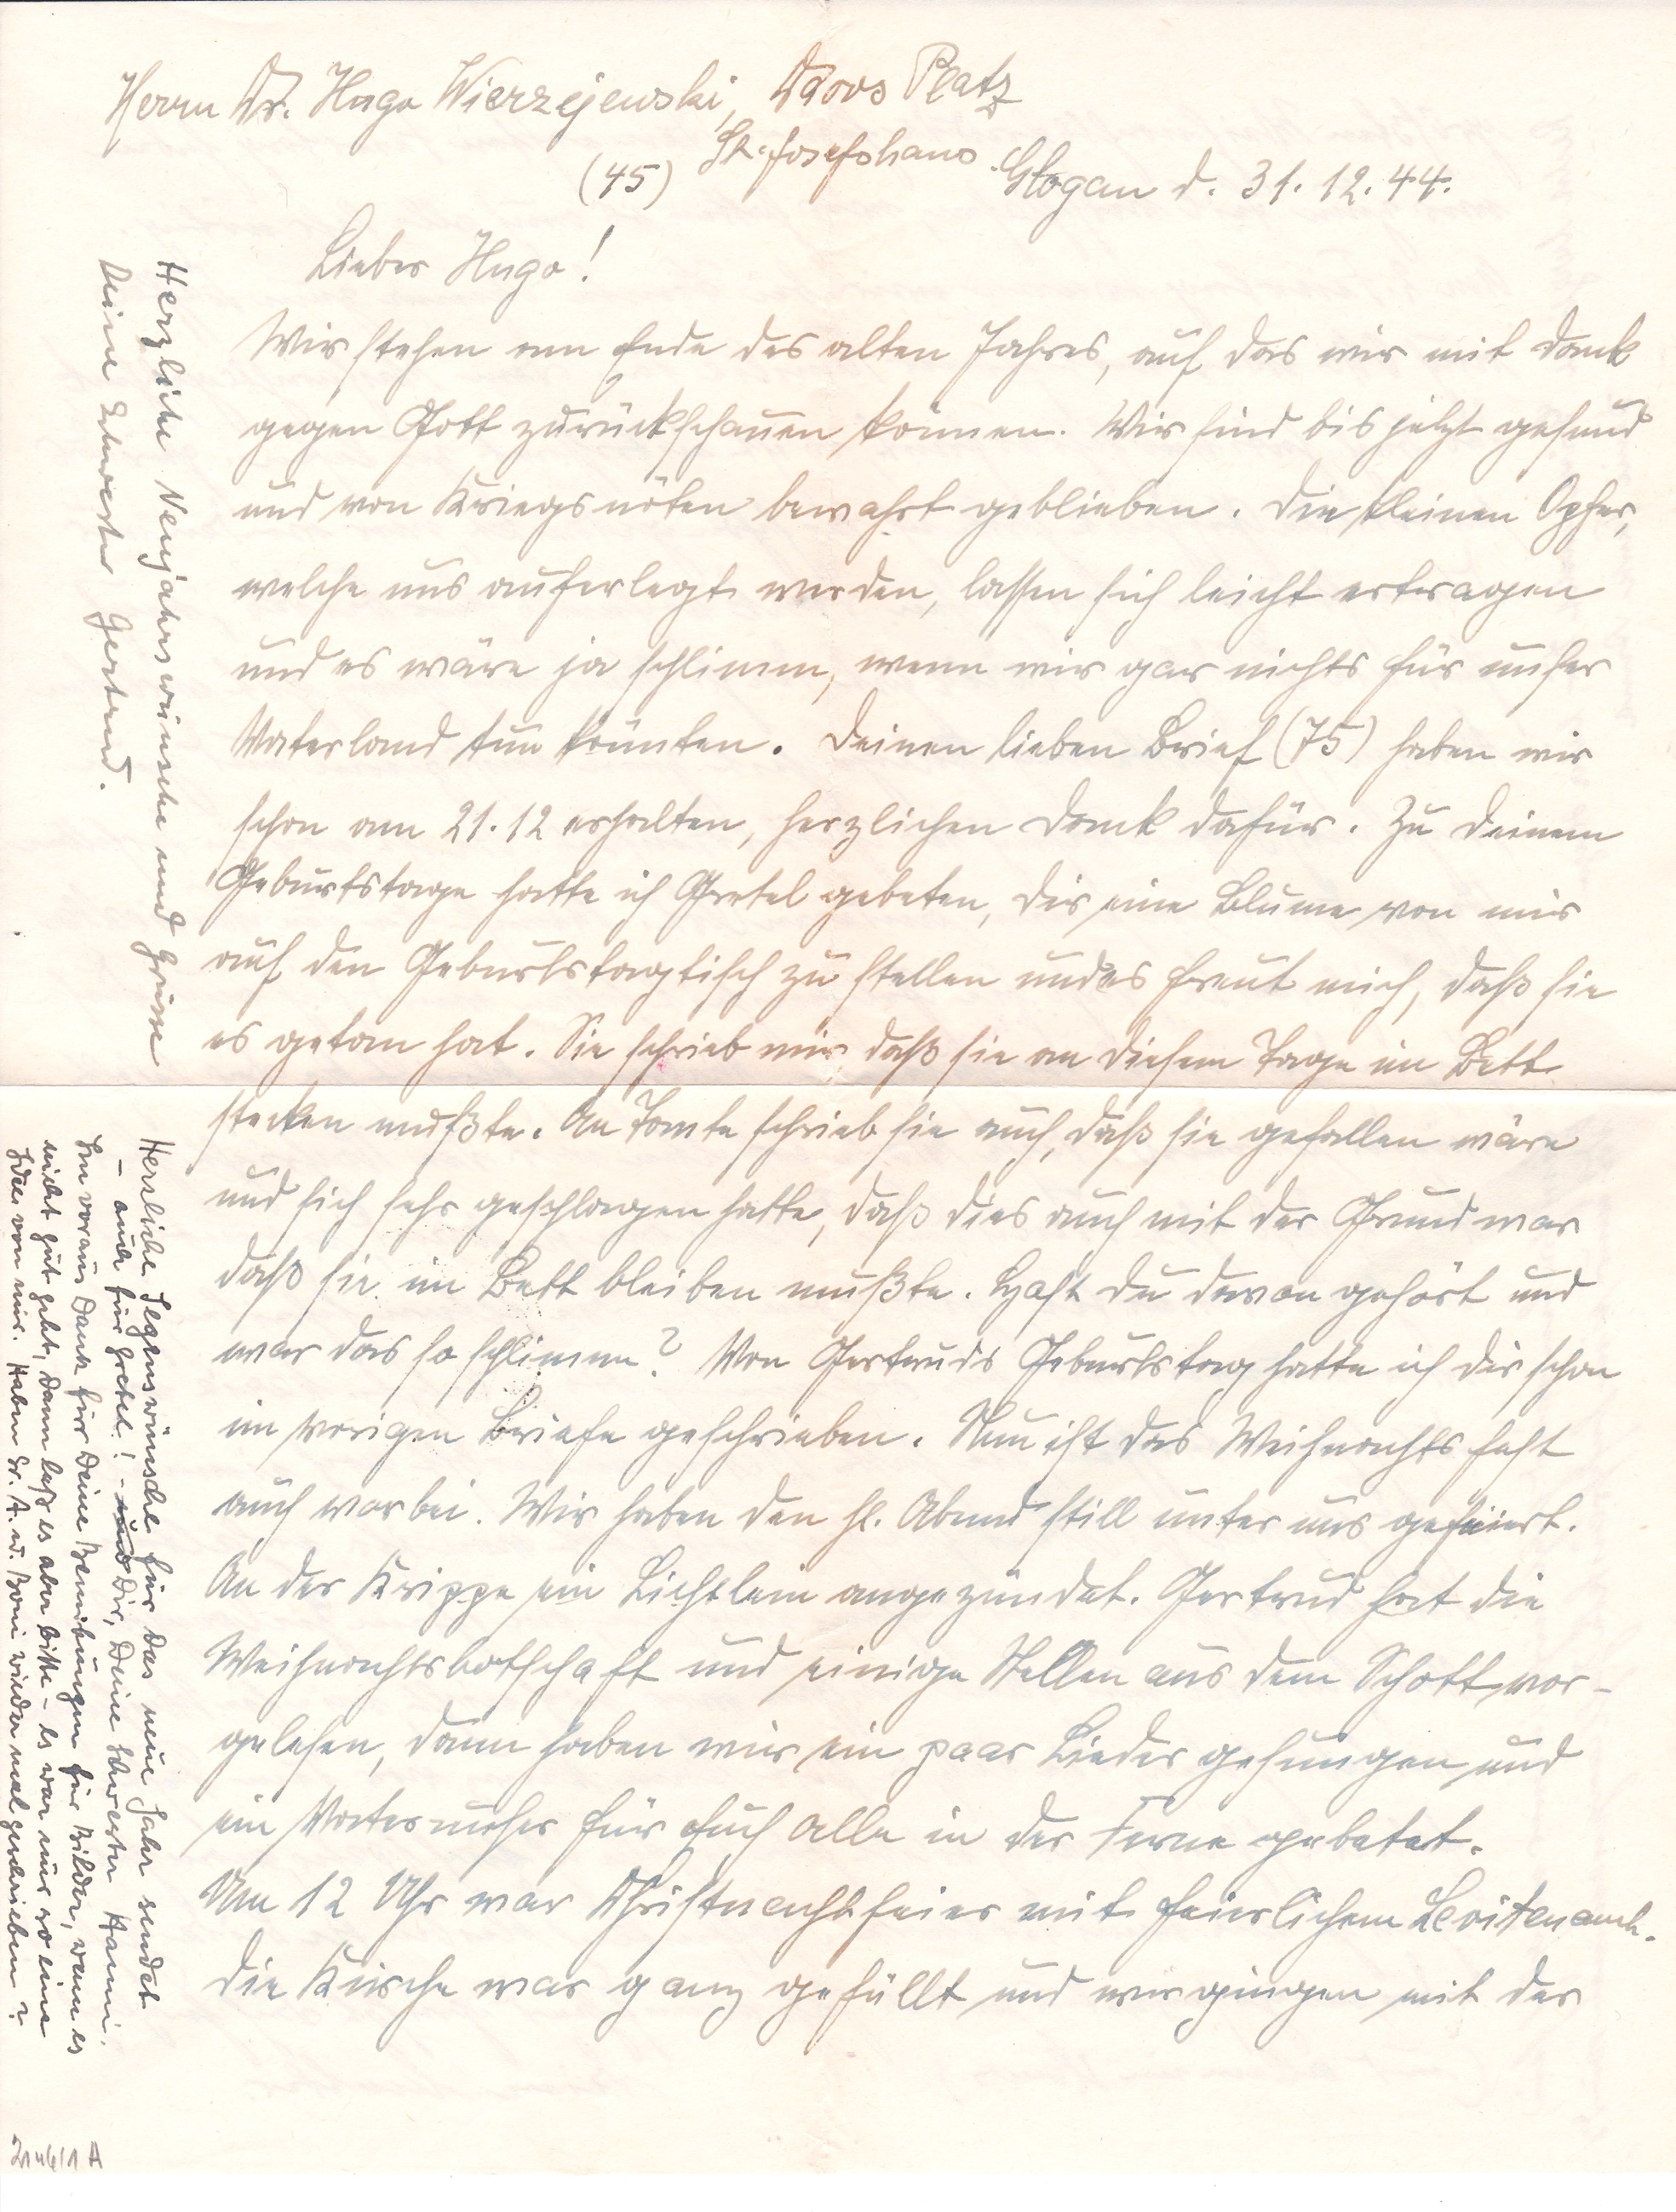 Herrn Dr. Hugo Wierzejewski, Davos Platz
St. Josefshaus
(45) Glogau d. 31. 12. 44.
Lieber Hugo!
Wir stehen am Ende des alten Jahres, auf das wir mit Dank
gegen Gott zurückschauen können. Wir sind bis jetzt gesund
und von Kriegsnöten bewahrt geblieben. Die kleinen Opfer,
welche uns auferlegt werden, lassen sich leicht ertragen
und es wäre ja schlimm, wenn wir gar nichts für unser
Vaterland tun könnten. Deinen lieben Brief (75) haben wir
schon am 21.12 erhalten, herzlichen Dank dafür. Zu Deinem
Geburtstage hatte ich Gretel gebeten, Dir eine Blume von mir
auf den Geburtstagtisch zu stellen und es freut mich, daß sie
es getan hat. Sie schrieb mir daß sie an diesem Tage im Bett
stecken mußte. An Tante schrieb sie auch, daß sie gefallen wäre
und sich sehr geschlagen hatte, daß dies auch mit der Grund war
daß sie im Bett bleiben mußte. Hast Du davon gehört und
war das so schlimm? Von Gertruds Geburtstag hatte ich Dir schon
im vorigen Briefe geschrieben. Nun ist das Weihnachtsfest
auch vorbei. Wir haben den hl. Abend still unter uns gefeiert.
An der Krippe ein Lichtlein angezündet. Gertrud hat die
Weihnachtsbotschaft und einige Stellen aus dem Schott vor-
gelesen, dann haben wir ein paar Lieder gesungen und
ein Vaterunser für Euch Alle in der Ferne gebetet.
Um 12 Uhr war Christnachtfeier mit feierlichem Levitenamt.
Die Kirche war ganz gefüllt und wir gingen mit der
Herzliche Neujahrswünsche und Grüsse
Deine Schwester Gertrud.
Herzliche Segenswünsche für das neue Jahr sendet
– auch für Gretel! – und Dir, Deine Schwester Hanni.
Im voraus Dank für Deine Bemühungen für Bilder, wenn es
nicht gut geht, dann laß es aber bitte – es war nur so eine
Idee von mir. Haben Sr. A. u. Boni wieder mal geschrieben?